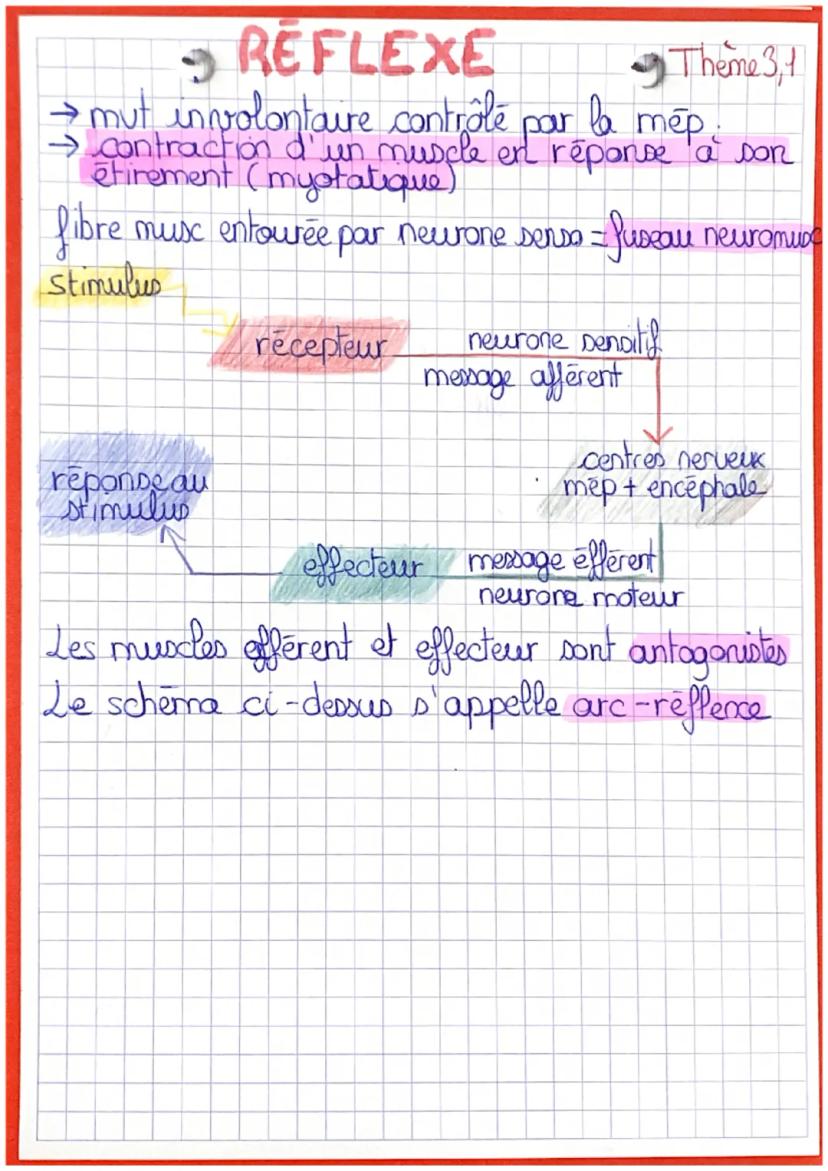 RÉFLEXE
Thème 3,1
→ mvt involontaire contrôlé par la mép.
→ contraction d'un muscle en réponse à son
étirement (myotatique)
fibre musc entourée par neurone senso = fuseau neuromusc
stimulus
récepteur
neurone sensitif
message afférent
centres nerveux
mép + encéphale
réponse au
stimulus
effecteur
message éfférent
neurone moteur
Les muscles efférent et effecteur sont antagonistes
Le schéma ci-dessus s'appelle arc-réflexe